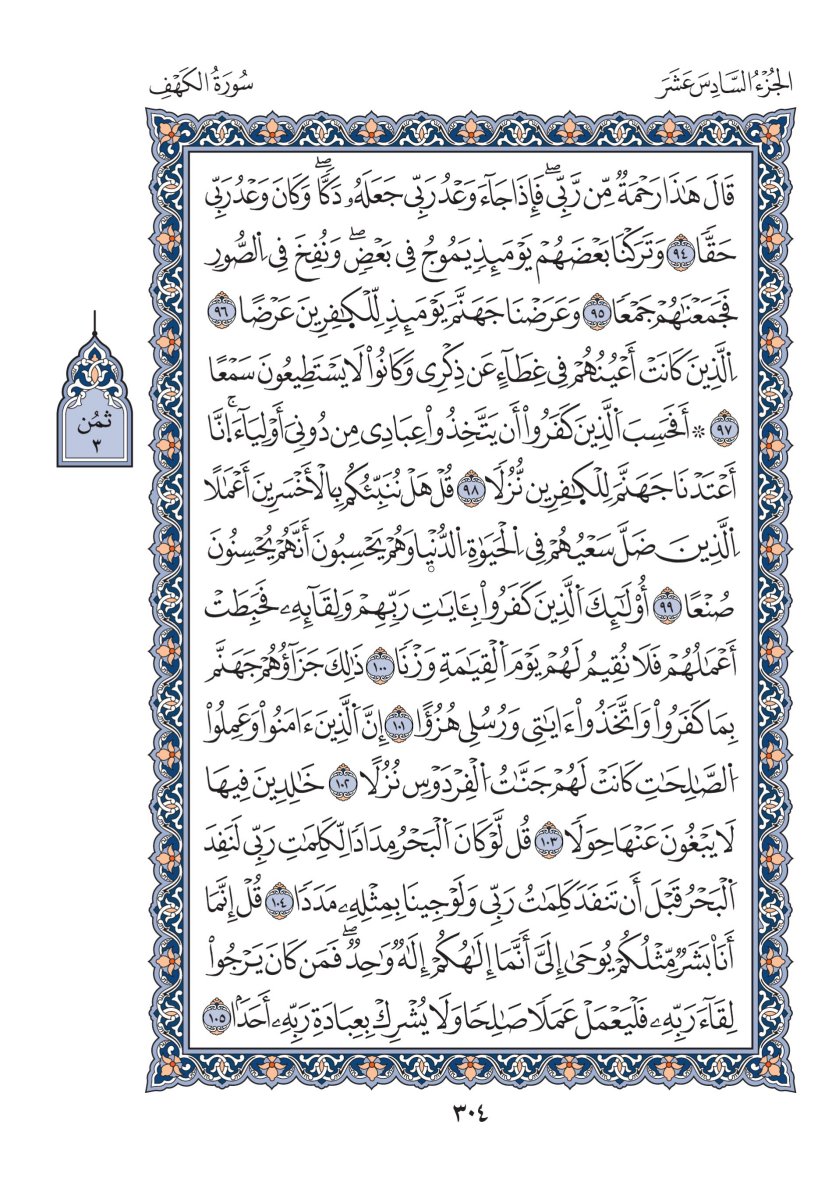 الجُزْءُ السَّادِسَ عَشَرَ
سُورَةُ الكَهْفِ
قَالَ هَٰذَا رَحْمَةٌ مِّن رَّبِّيۖ فَإِذَا جَآءَ وَعْدُ رَبِّي جَعَلَهُۥ دَكّٗاۖ وَكَانَ وَعْدُ رَبِّي
حَقّٗا ٩٤ وَتَرَكْنَا بَعْضَهُمْ يَوْمَئِذٖ يَمُوجُ فِي بَعْضٖۖ وَنُفِخَ فِي اِ۬لصُّورِ
فَجَمَعْنَٰهُمْ جَمْعٗا ٩٥ وَعَرَضْنَا جَهَنَّمَ يَوْمَئِذٖ لِّلْكٰ۪فِرِينَ عَرْضًا ٩٦
اِ۬لَّذِينَ كَانَتْ أَعْيُنُهُمْ فِي غِطَآءٍ عَن ذِكْرِي وَكَانُواْ لَا يَسْتَطِيعُونَ سَمْعًا
٩٧ ۞ أَفَحَسِبَ اَ۬لَّذِينَ كَفَرُوٓاْ أَن يَتَّخِذُواْ عِبَادِي مِن دُونِيَ أَوْلِيَآءَۚ اِ۪نَّا
أَعْتَدْنَا جَهَنَّمَ لِلْكٰ۪فِرِينَ نُزُلٗا ٩٨ قُلْ هَلْ نُنَبِّئُكُم بِالْأَخْسَرِينَ أَعْمَٰلًا
اِ۬لَّذِينَ ضَلَّ سَعْيُهُمْ فِي اِ۬لْحَيَوٰةِ اِ۬لدُّنْي۪ا وَهُمْ يَحْسِبُونَ أَنَّهُمْ يُحْسِنُونَ
صُنْعًا ٩٩ أُوْلَٰٓئِكَ اَ۬لَّذِينَ كَفَرُواْ بِـَٔايَٰتِ رَبِّهِمْ وَلِقَآئِهِۦ فَحَبِطَتْ
أَعْمَٰلُهُمْ فَلَا نُقِيمُ لَهُمْ يَوْمَ اَ۬لْقِيَٰمَةِ وَزْنٗا ١٠٠ ذَٰلِكَ جَزَآؤُهُمْ جَهَنَّمُ
بِمَا كَفَرُواْ وَاتَّخَذُوٓاْ ءَايَٰتِي وَرُسُلِي هُزُؤًا ١٠١ إِنَّ اَ۬لَّذِينَ ءَامَنُواْ وَعَمِلُواْ
اُ۬لصَّٰلِحَٰتِ كَانَتْ لَهُمْ جَنَّٰتُ اُ۬لْفِرْدَوْسِ نُزُلًا ١٠٢ خَٰلِدِينَ فِيهَا
لَا يَبْغُونَ عَنْهَا حِوَلٗا ١٠٣ قُل لَّوْ كَانَ اَ۬لْبَحْرُ مِدَادٗا لِّكَلِمَٰتِ رَبِّي لَنَفِدَ
اَ۬لْبَحْرُ قَبْلَ أَن تَنفَدَ كَلِمَٰتُ رَبِّي وَلَوْ جِئْنَا بِمِثْلِهِۦ مَدَدٗا ١٠٤ قُلْ إِنَّمَآ
أَنَا۠ بَشَرٞ مِّثْلُكُمْ يُوحَىٰٓ إِلَيَّ أَنَّمَآ إِلَٰهُكُمْ إِلَٰهٞ وَٰحِدٞۖ فَمَن كَانَ يَرْجُواْ
لِقَآءَ رَبِّهِۦ فَلْيَعْمَلْ عَمَلٗا صَٰلِحٗا وَلَا يُشْرِكْ بِعِبَادَةِ رَبِّهِۦٓ أَحَدَۢا ١٠٥
ثُمُن
٣
٣٠٤